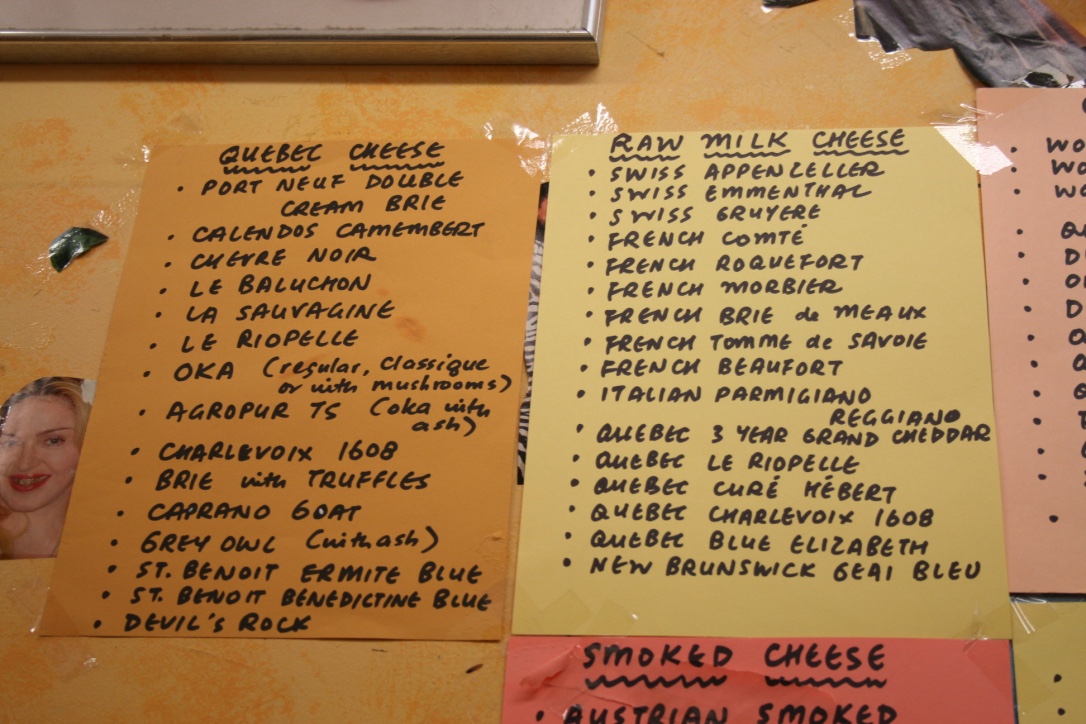 QUEBEC CHEESE
• PORT NEUF DOUBLE
CREAM BRIE
• CALENDOS CAMEMBERT
• CHEVRE NOIR
• LE BALUCHON
• LA SAUVAGINE
• LE RIOPELLE
• OKA (regular, classique
or with mushrooms)
• AGROPUR TS (oka with
ash)
• CHARLEVOIX 1608
• BRIE with TRUFFLES
• CAPRANO GOAT
• GREY OWL (with ash)
• ST. BENOIT ERMITE BLUE
• ST. BENOIT BENEDICTINE BLUE
• DEVIL'S ROCK
RAW MILK CHEESE
• SWISS APPENZELLER
• SWISS EMMENTHAL
• SWISS GRUYERE
• FRENCH COMTÉ
• FRENCH ROQUEFORT
• FRENCH MORBIER
• FRENCH BRIE de MEAUX
• FRENCH TOMME de SAVOIE
• FRENCH BEAUFORT
• ITALIAN PARMIGIANO
REGGIANO
• QUEBEC 3 YEAR GRAND CHEDDAR
• QUEBEC LE RIOPELLE
• QUEBEC CURÉ HÉBERT
• QUEBEC CHARLEVOIX 1608
• QUEBEC BLUE ELIZABETH
• NEW BRUNSWICK GEAI BLEU
SMOKED CHEESE
• AUSTRIAN SMOKED